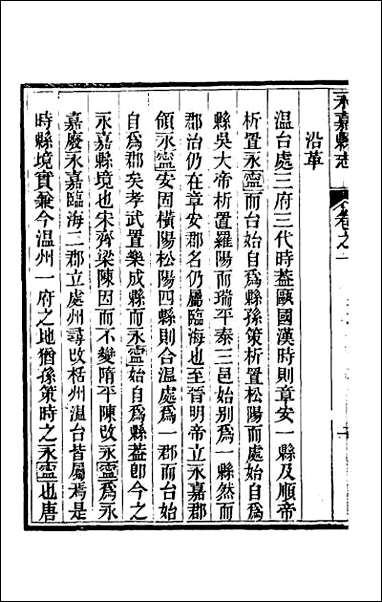 永嘉縣志
卷之一
沿革
溫台處三府三代時葢甌國漢時則章安一縣及順帝
析置永寧而台始自爲縣孫策析置松陽而處始自爲
縣吳大帝析置羅陽而瑞平泰三邑始別爲一縣然而
郡治仍在章安郡名仍屬臨海也至晉明帝立永嘉郡
領永寧安固橫陽松陽四縣則合溫處爲一郡而台始
自爲郡矣孝武置樂成縣而永寧始自爲縣葢卽今之
永嘉縣境也宋齊梁陳因而不變隋平陳改永寧爲永
嘉廢永嘉臨海二郡立處州尋改栝州溫台皆屬焉是
時縣境實兼今溫州一府之地猶孫策時之永寧也唐